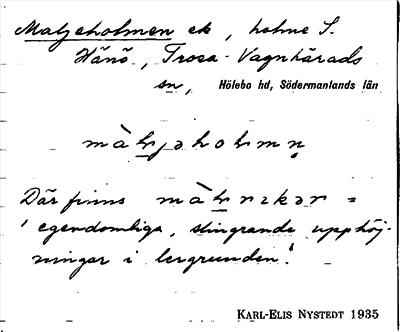 Maljeholmen ek, holme S.
Hånö, Trosa-Vagnhärads
sn, Hölebo hd, Södermanlands län
Där finns =
'egendomliga, slingrande upphöj-
ningar i lergrunden.'
KARL-ELIS NYSTEDT 1935